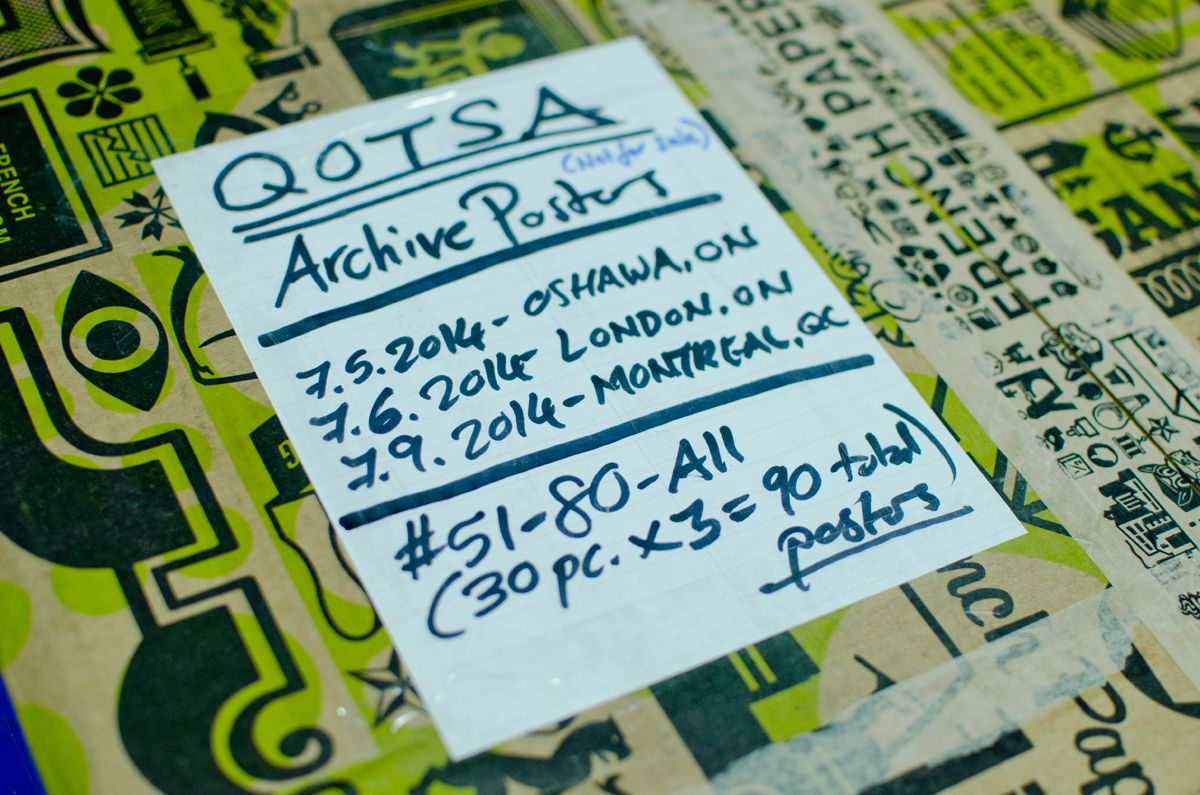 QOTSA
(Not for Sale)
Archive Posters
7.5.2014 - OSHAWA, ON
7.6.2014 - LONDON, ON
7.9.2014 - MONTREAL, QC
#51-80 - All
(30 pc. x 3 = 90 total)
posters
FRENCH
FRENCH PAPER